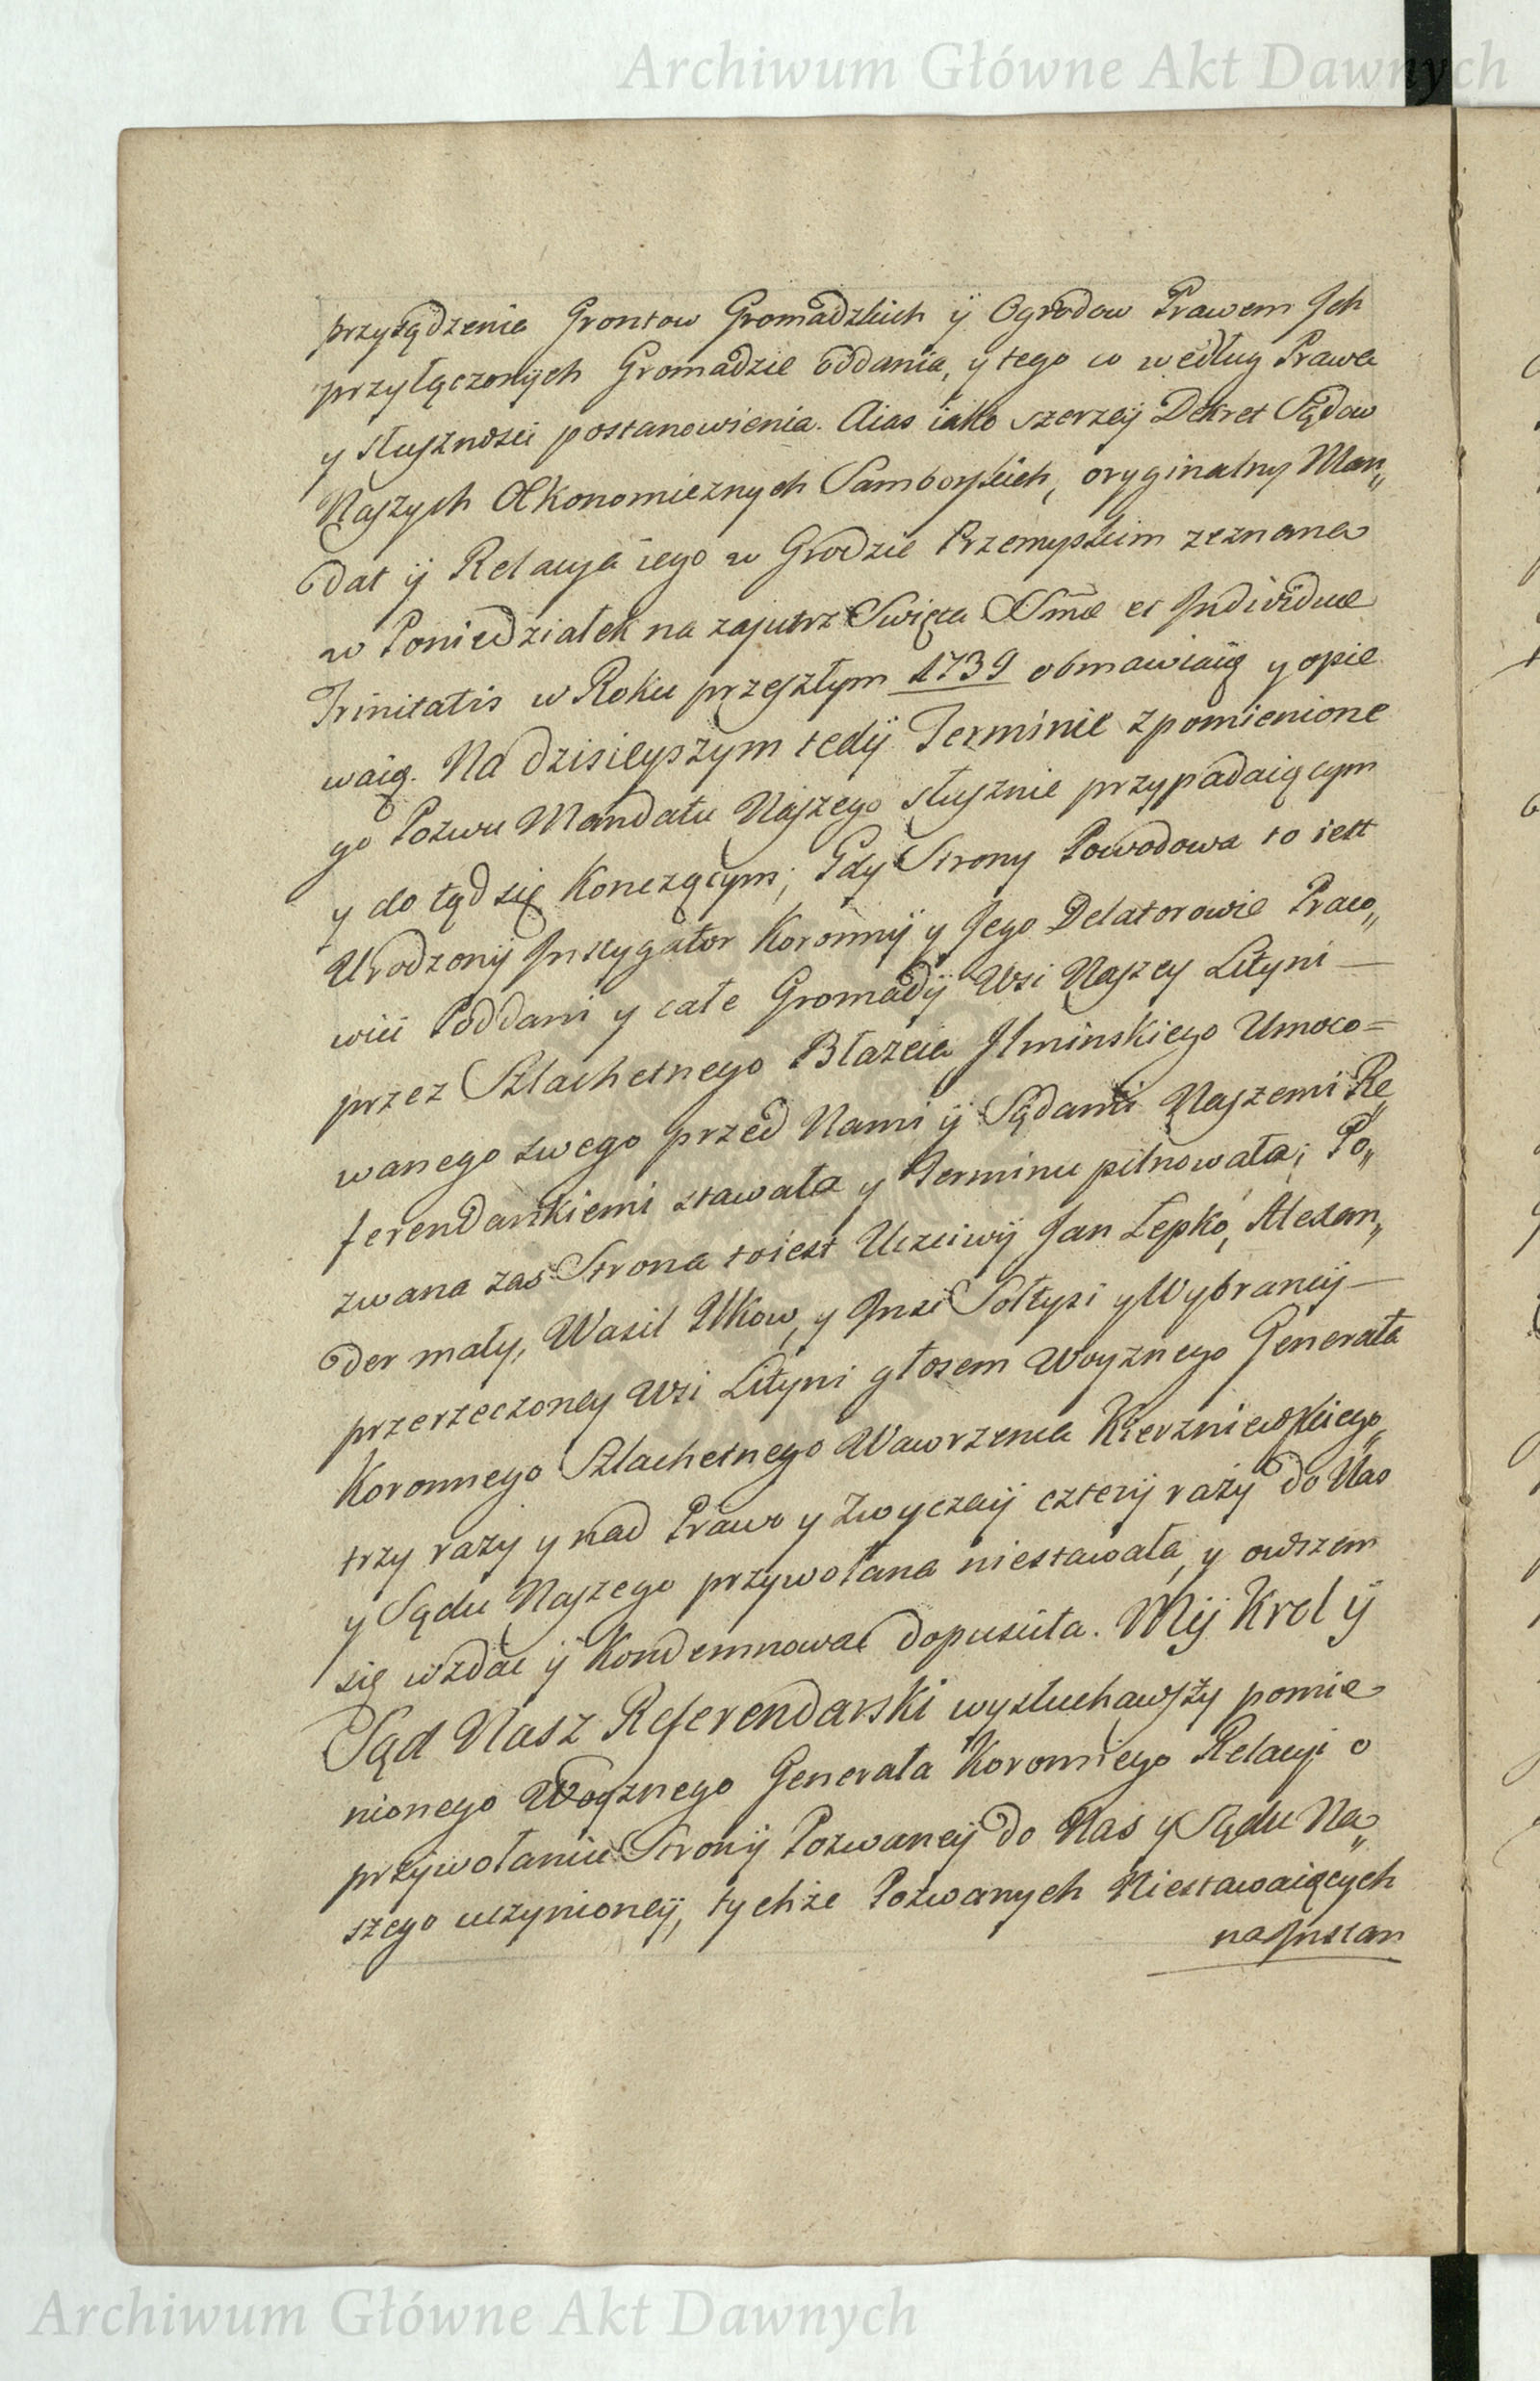 Archiwum Główne Akt Dawnych
przysądzenia Grontow Gromadzkich ÿ Ogrodow Prawem Jch
przyłączonÿch Gromadzie oddania, y tego co według Prawa
y słusznosci postanowienia. Aias iako szerzeÿ Dekret Sądow
Naszych Œkonomicznych Samborskich, oryginalny Man„
dat ÿ Relacya iego w Grodzie Przemyskim zeznana
w Poniedziałek na zajutrz Swięta SSmæ et Individuæ
Trinitatis w Roku przeszłym 1739 obmawiaią y opie
waią. Na dzisieyszym tedÿ Terminie z pomienione
go Pozwu Mandatu Naszego słusznie przypadaiącym
y do tąd się Konczącym; Gdy Strony Powodowa to iest
Urodzonÿ Instygator Koronnÿ y Jego Delatorowie Praco„
wici Poddani y całe Gromadÿ Wsi Naszey Litÿni —
przez Szlachetnego Błażeia Jlminskiego Umoco=
wanego swego przed Nami ÿ Sądami Naszemi Re„
ferendarskiemi stawała y Terminu pilnowała; Po„
zwana zas Strona toiest Uczciwÿ Jan Łepko, Alexan„
der mały, Wasil Ilkow, y Jnsi Sołtysi y Wybrancÿ —
przerzeczoney Wsi Litÿni głosem Woyznego Generała
Koronnego Szlachetnego Wawrzenca Kierzniewskiego
trzy razy y nad Prawo y Zwyczaiÿ czterÿ razÿ do Nas
y Sądu Naszego przywołana niestawała, y owszem
się wzdać ÿ Kondemnować dopusciła. Mÿ Krol ÿ
Sąd Nasz Referendarski wysłuchawszy pomie
nionego Woyznego Generała Koronnego Relacyi o
przÿwołaniu Stronÿ Pozwaneÿ do Nas y Sądu Na„
szego uczynioneÿ, tychże Pozwanych Niestawaiących
na Jnstan
Archiwum Główne Akt Dawnych